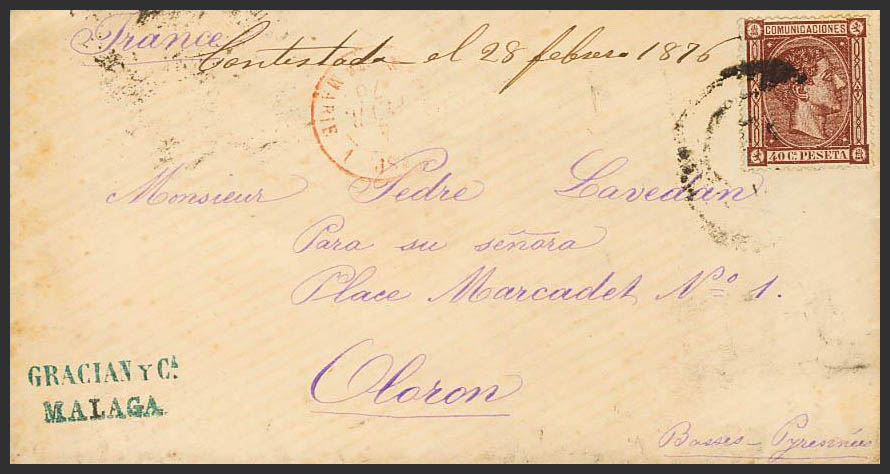 France
Contestada el 28 febrero 1876
COMUNICACIONES
40 Cs PESETA
MARIE
76
Monsieur Pedre Lavedan
Para su señora
Place Marcadet Nº 1.
Oloron
GRACIAN Y CA.
MALAGA
Basses-Pyrennées